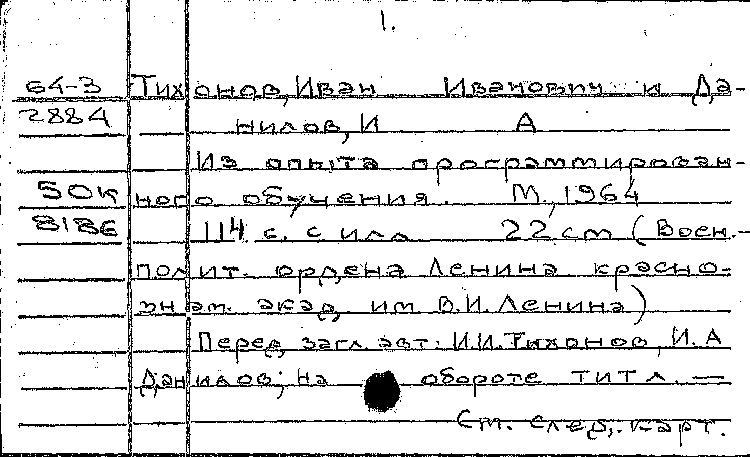 1.
64-3 Тихонов, Иван Иванович и Да-
2884 нилов, И А
Из опыта программирован-
50к ного обучения. М., 1964
8186 114 с. с илл 22 см (Воен.-
полит. ордена Ленина красно-
знам. акад. им В.И. Ленина)
Перед загл. авт: И.И. Тихонов, И. А
Данилов; на обороте титл. —
См. след. карт.